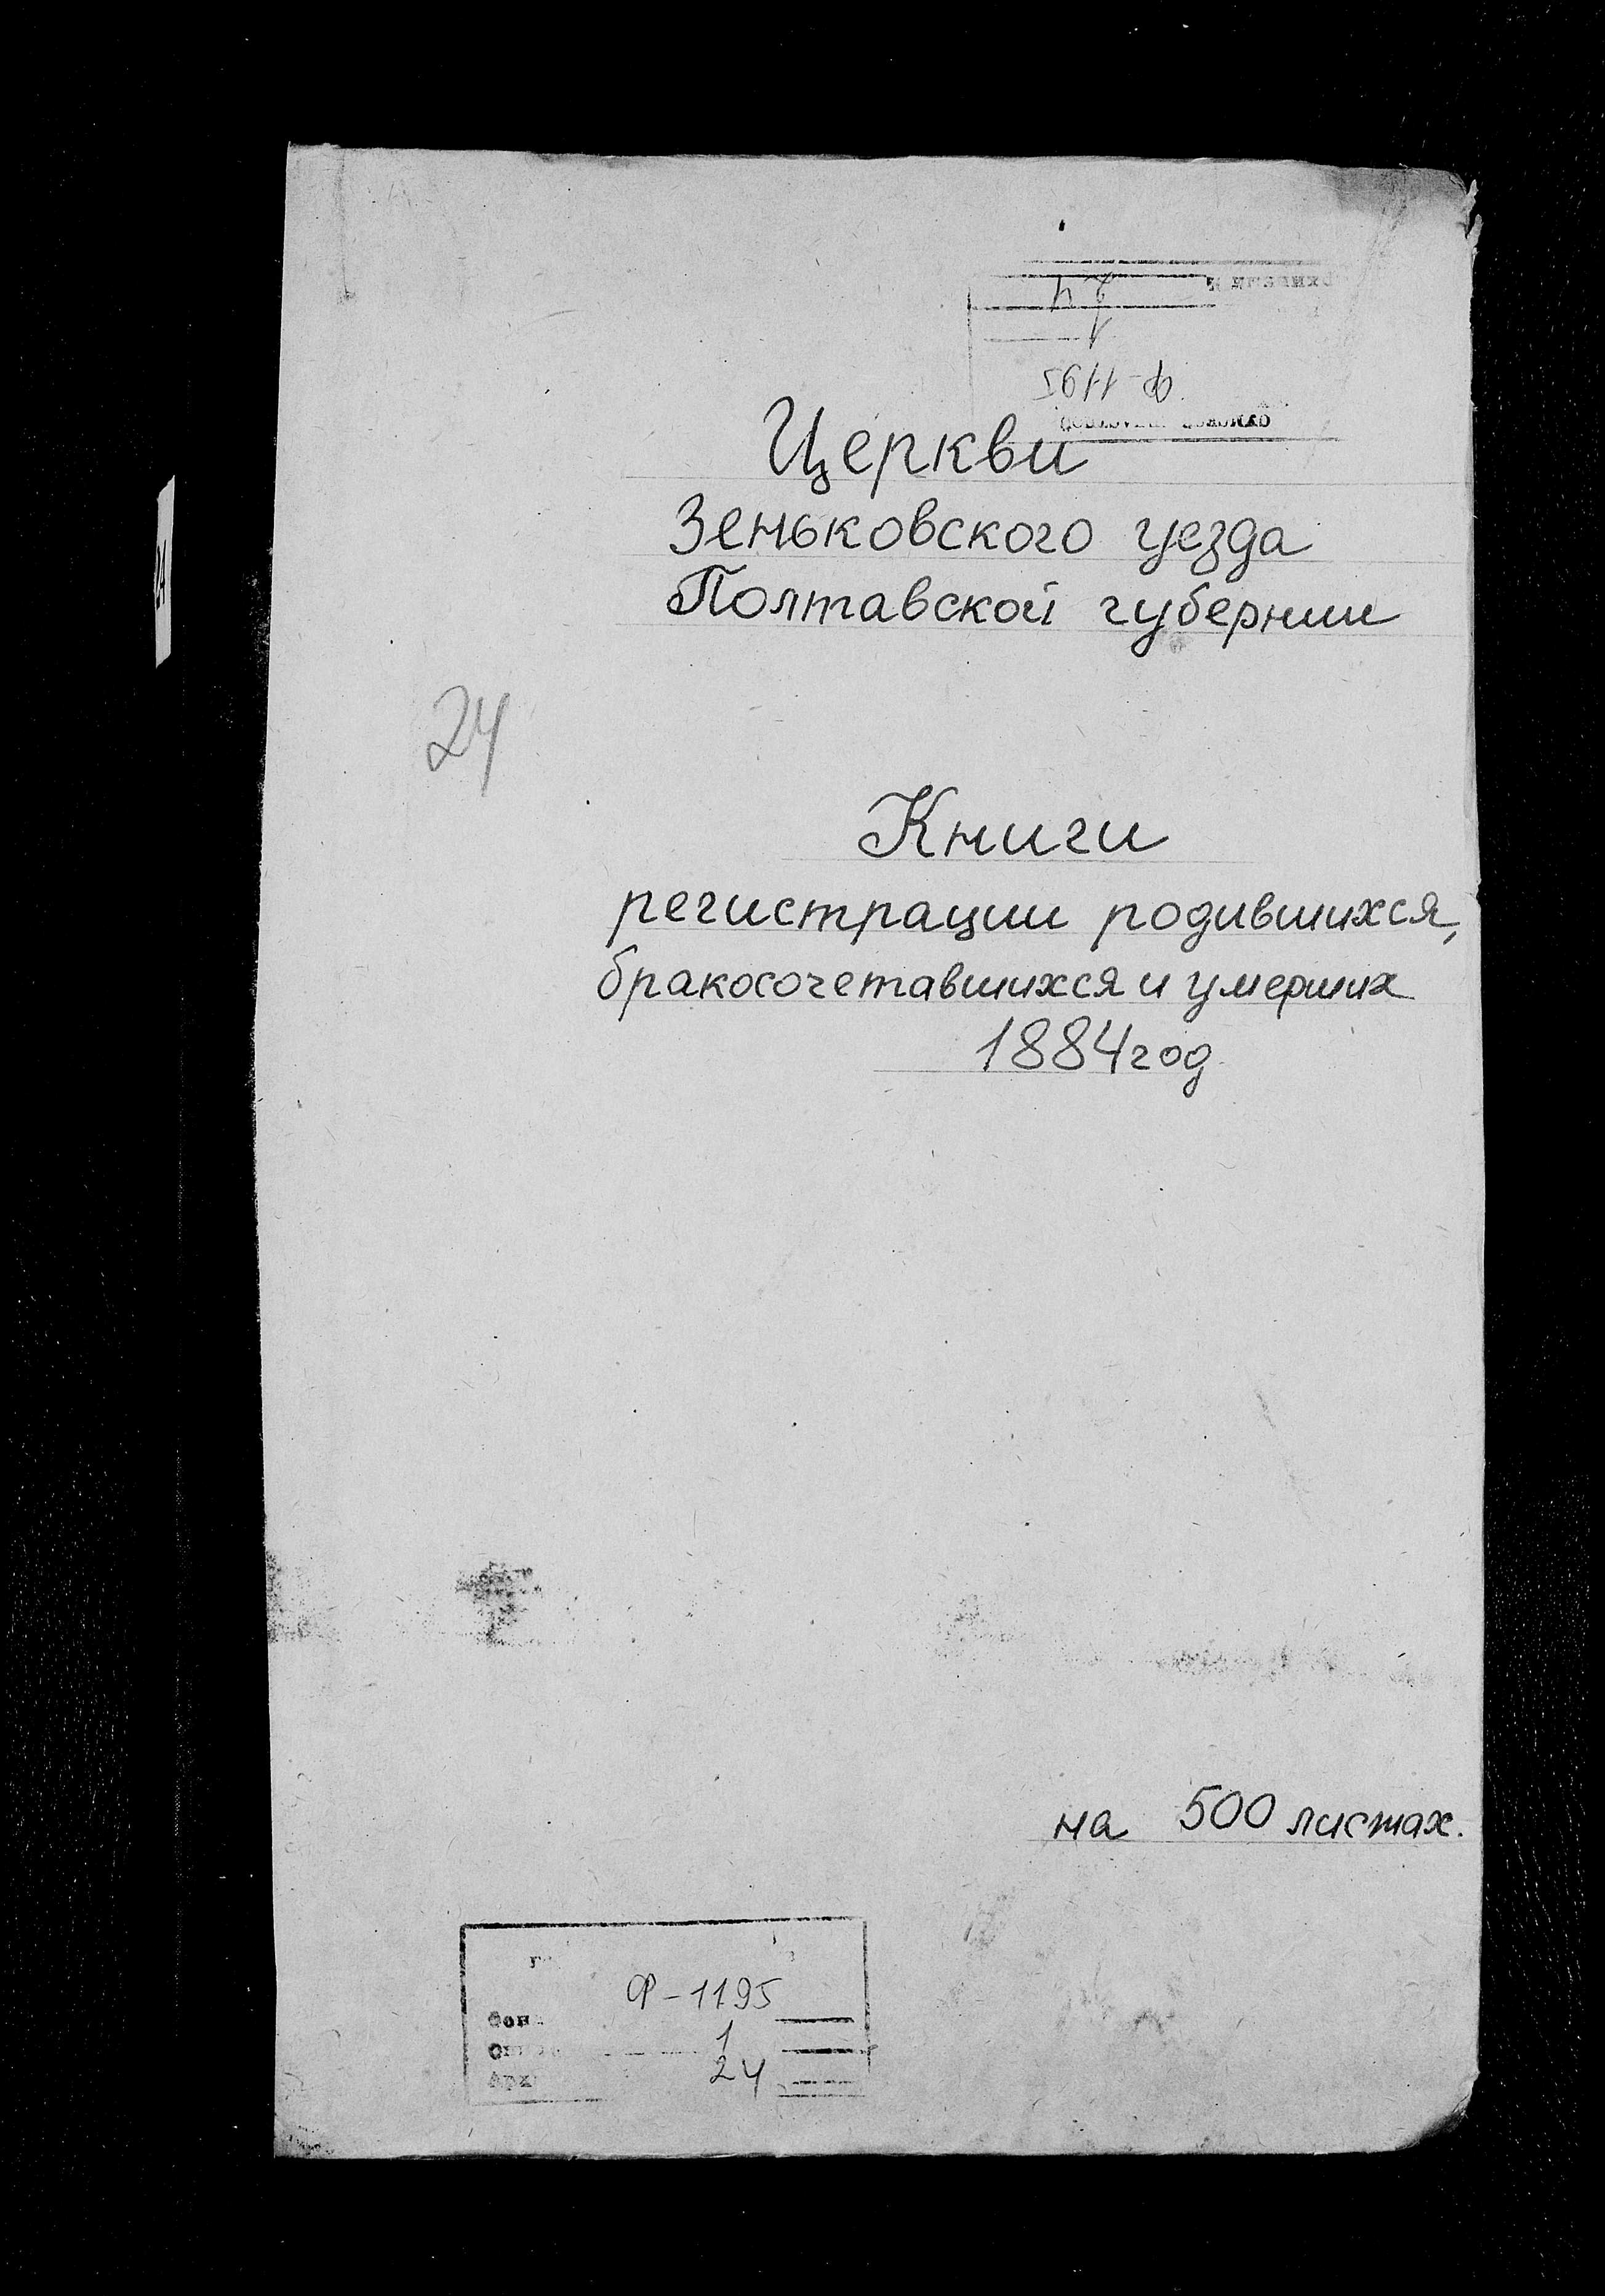 24
Ф-1195
1
24
Церкви
Зеньковского уезда
Полтавской губернии
24
Книги
регистрации родившихся,
бракосочетавшихся и умерших
1884 год
на 500 листах.
Ф-1195
1
24